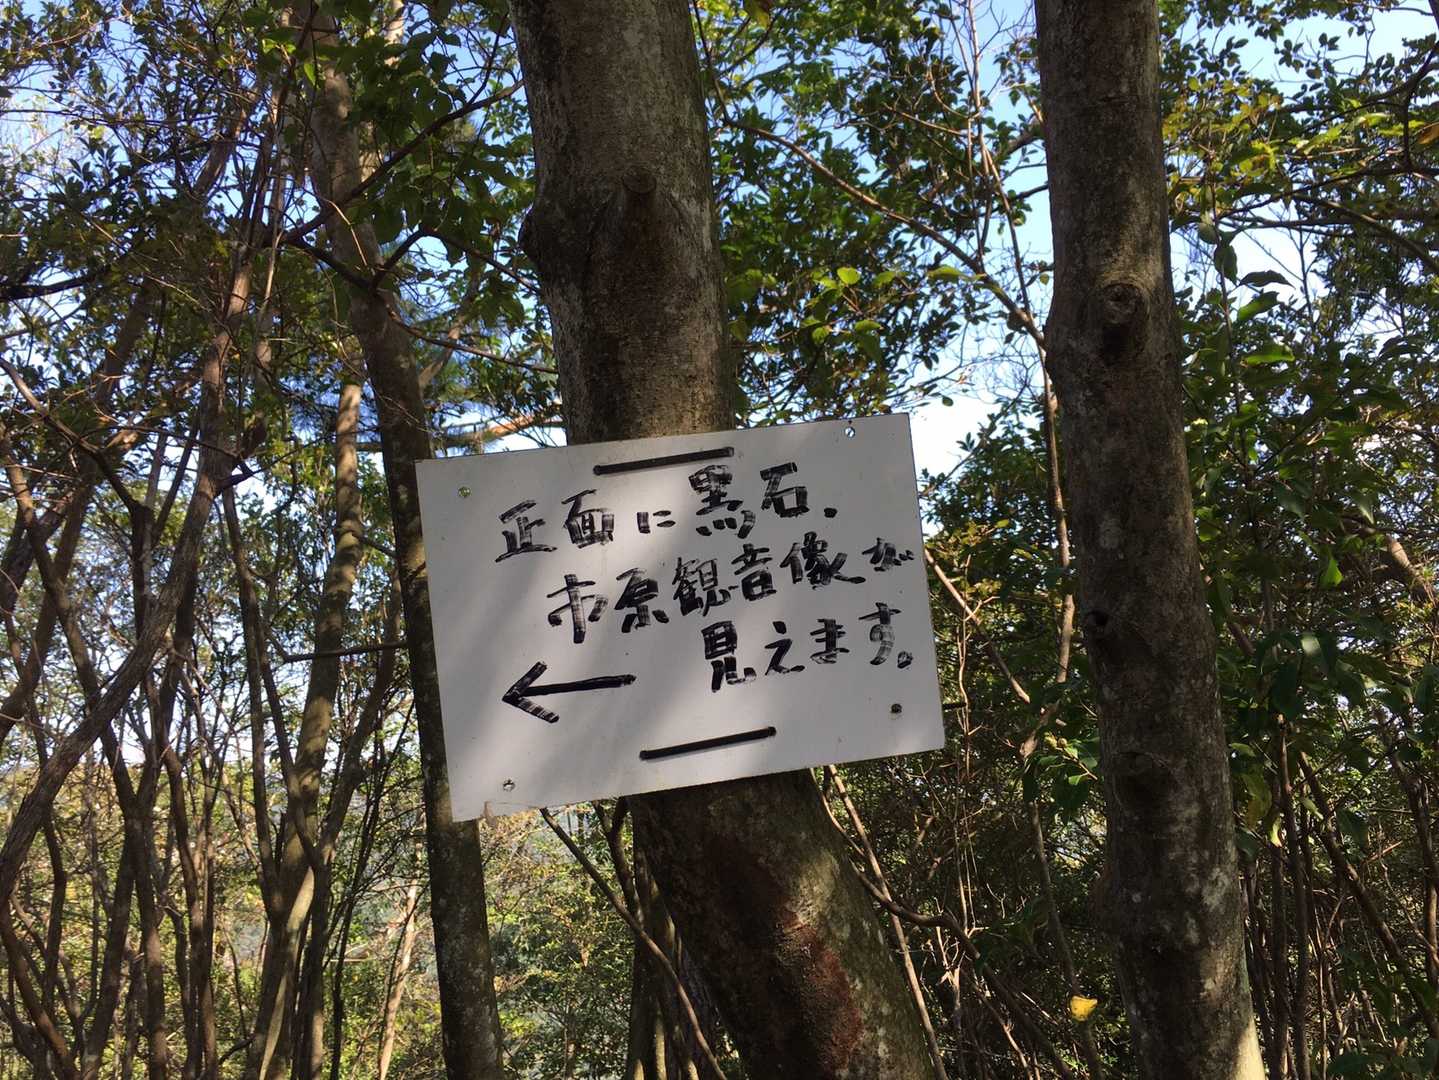 正面に黒石.
市原観音像が
見えます。